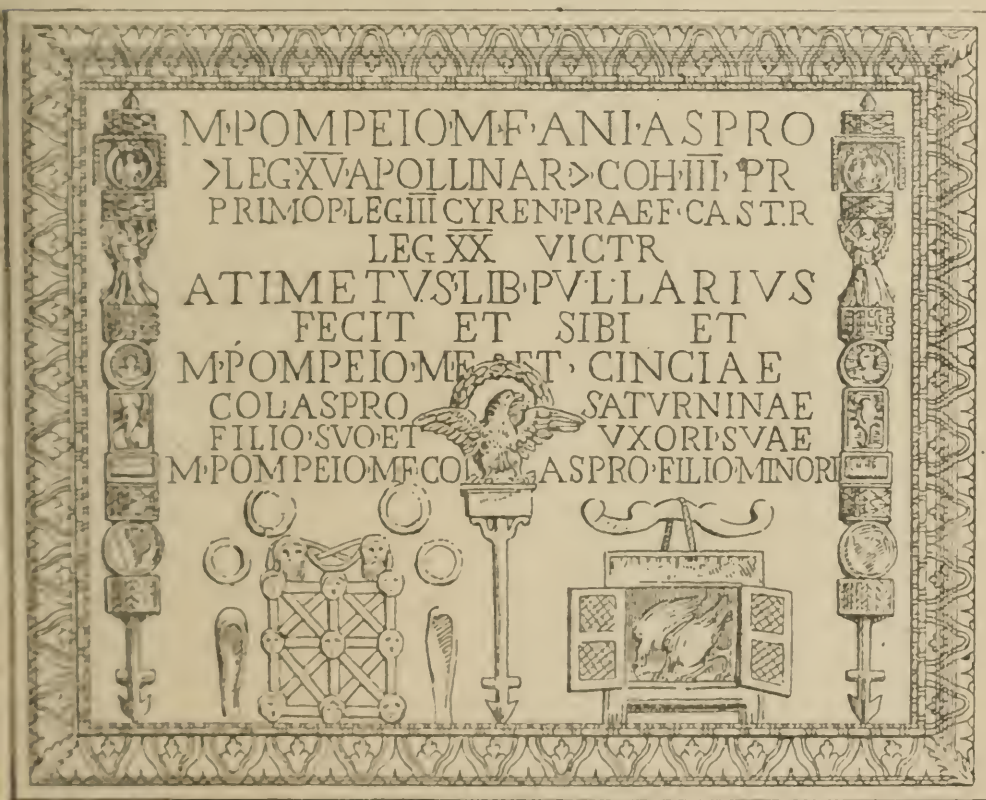 M·POMPEIO·M·F·ANI·ASPRO
>LEG·X̅V̅·APOLLINAR>·COH·I̅I̅I̅·PR
PRIMOP·LEG I̅I̅I̅ CYREN·PRAEF·CASTR
LEG X̅X̅ VICTR
ATIMETVS·LIB·PVLLARIVS
FECIT ET SIBI ET
M·POMPEIO·M·F ET · CINCIAE
COL ASPRO SATVRNINAE
FILIO·SVO·ET VXORI·SVAE
M·POMPEIO·M·F·COL ASPRO·FILIO·MINORI